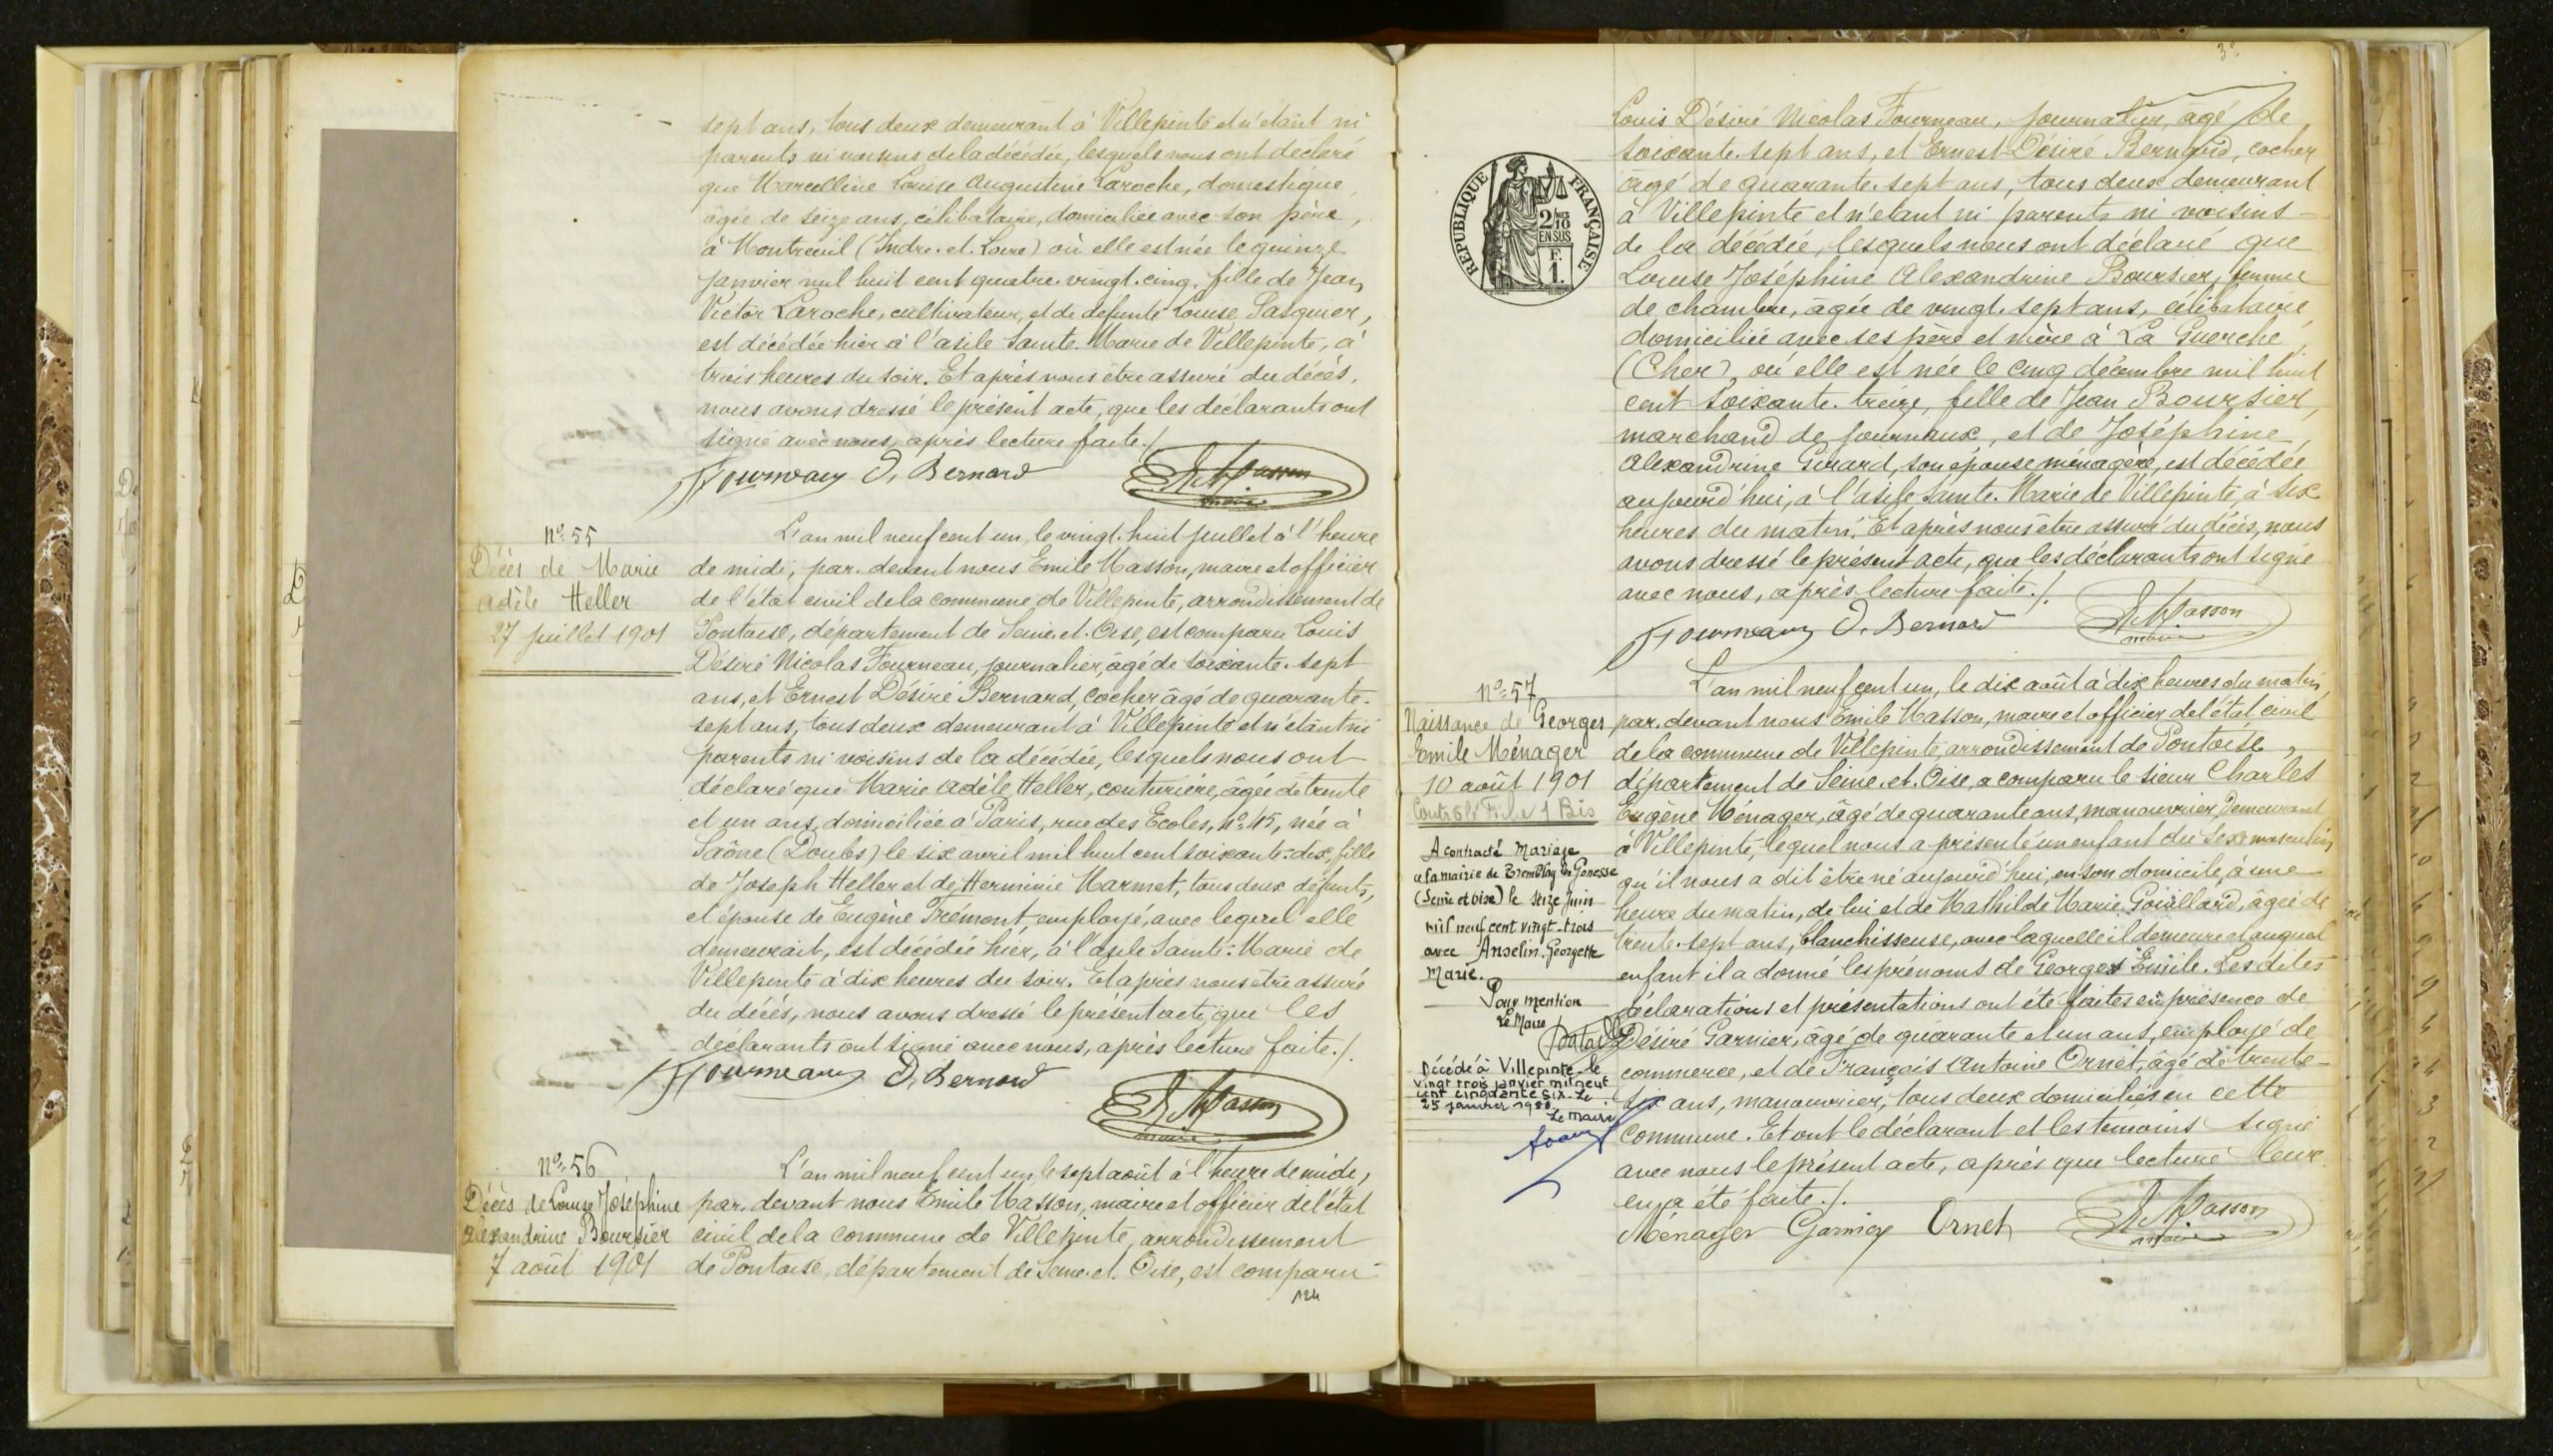 sept ans, tous deux demeurant à Villepinte et n'étant ni
parents ni voisins de la décédée, lesquels nous ont déclaré
que Marcelline Louise Augustine Laroche, domestique,
âgée de seize ans, célibataire, domiciliée avec son père,
à Montreuil (Indre-et-Loire) où elle est née le quinze
janvier mil huit cent quatre-vingt-cinq, fille de Jean
Victor Laroche, cultivateur, et de défunte Louise Pasquier,
est décédée hier à l'asile Sainte-Marie de Villepinte, à
trois heures du soir. Et après nous être assuré du décès,
nous avons dressé le présent acte, que les déclarants ont
signé avec nous, après lecture faite./.
Fourneaux D. Bernard E. Masson
maire
N° 55
Décès de Marie
Adèle Heller
27 juillet 1901
L'an mil neuf cent un, le vingt-huit juillet à l'heure
de midi, par-devant nous Emile Masson, maire et officier
de l'état civil de la commune de Villepinte, arrondissement de
Pontoise, département de Seine-et-Oise, est comparu Louis
Désiré Nicolas Fourneau, journalier, âgé de soixante-sept
ans, et Ernest Désiré Bernard, cocher âgé de quarante-
sept ans, tous deux demeurant à Villepinte et n'étant ni
parents ni voisins de la décédée, lesquels nous ont
déclaré que Marie Adèle Heller, couturière, âgée de trente
et un ans, domiciliée à Paris, rue des Ecoles, N° 45, née à
Saône (Doubs) le six avril mil huit cent soixante-dix, fille
de Joseph Heller et de Herminie Marmet, tous deux défunts,
et épouse de Eugène Trémont, employé, avec lequel elle
demeurait, est décédée hier, à l'asile Sainte-Marie de
Villepinte à dix heures du soir. Et après nous être assuré
du décès, nous avons dressé le présent acte, que les
déclarants ont signé avec nous, après lecture faite./.
Fourneaux D. Bernard E. Masson
maire
N° 56
Décès de Louise Joséphine
Alexandrine Boursier
7 août 1901
L'an mil neuf cent un, le sept août à l'heure de midi,
par-devant nous Emile Masson, maire et officier de l'état
civil de la commune de Villepinte, arrondissement
de Pontoise, département de Seine-et-Oise, est comparu
124
RÉPUBLIQUE FRANÇAISE
2/10
EN SUS
F.
1.
Louis Désiré Nicolas Fourneau, journalier, âgé de
soixante-sept ans, et Ernest Désiré Bernard, cocher
âgé de quarante-sept ans, tous deux demeurant
à Villepinte et n'étant ni parents ni voisins
de la décédée, lesquels nous ont déclaré que
Louise Joséphine Alexandrine Boursier, femme
de chambre, âgée de vingt-sept ans, célibataire,
domiciliée avec ses père et mère à La Guerche,
(Cher), où elle est née le cinq décembre mil huit
cent soixante-treize, fille de Jean Boursier,
marchand de journaux, et de Joséphine
Alexandrine Girard, son épouse ménagère, est décédée
aujourd'hui, à l'asile Sainte-Marie de Villepinte, à six
heures du matin. Et après nous être assuré du décès, nous
avons dressé le présent acte, que les déclarants ont signé
avec nous, après lecture faite./.
Fourneaux D. Bernard E. Masson
maire
N° 57
Naissance de Georges
Emile Ménager
10 août 1901
1 Bis
A contracté mariage
à la mairie de Tremblay les Gonesse
(Seine et Oise) le seize juin
mil neuf cent vingt-trois
avec Anselin Georgette
Marie.
Pour mention
Le Maire
Décédé à Villepinte le
vingt trois janvier mil neuf
cent cinquante six. Le
25 janvier 1956
Le Maire
L'an mil neuf cent un, le dix août à dix heures du matin,
par-devant nous Emile Masson, maire et officier de l'état civil
de la commune de Villepinte, arrondissement de Pontoise,
département de Seine-et-Oise, a comparu le sieur Charles
Eugène Ménager, âgé de quarante ans, manouvrier, demeurant
à Villepinte, lequel nous a présenté un enfant du sexe masculin,
qu'il nous a dit être né aujourd'hui, en son domicile, à une
heure du matin, de lui et de Mathilde Marie, âgée de
trente-sept ans, blanchisseuse, avec laquelle il demeure et auquel
enfant il a donné les prénoms de Georges Emile. Les dites
déclarations et présentations ont été faites en présence de
Désiré Garnier, âgé de quarante et un ans, employé de
commerce, et de François Antoine Ornet, âgé de trente-
six ans, manouvrier, tous deux domiciliés en cette
commune. Et ont le déclarant et les témoins signé
avec nous le présent acte, après que lecture leur
en a été faite./.
Ménager Garnier Ornet E. Masson
maire